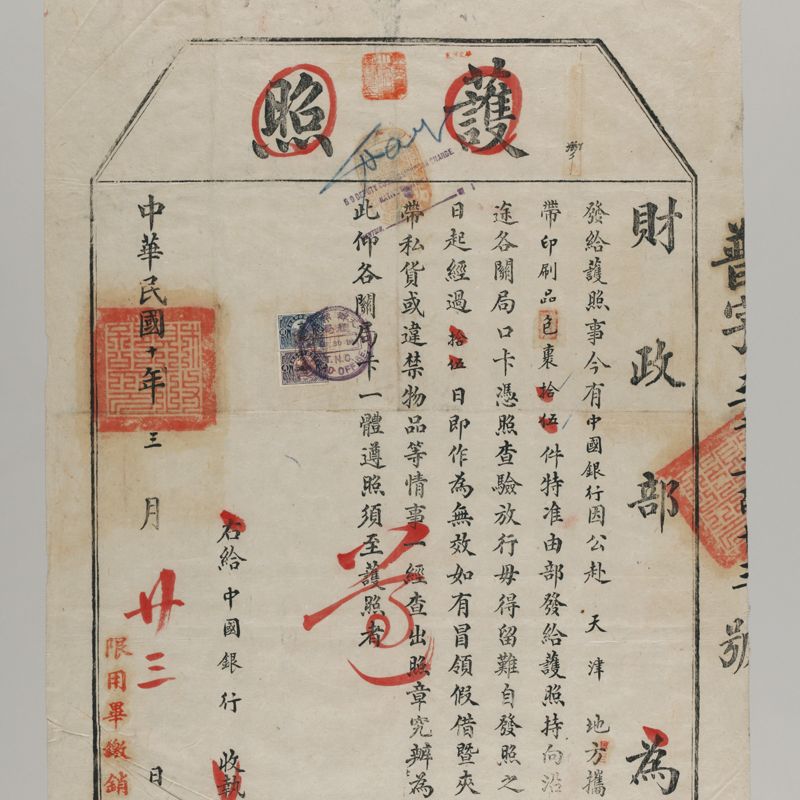 護照
財政部為
發給護照事今有中國銀行因公赴天津地方攜
帶印刷品包裹拾伍件特准由部發給護照持向沿
途各關局口卡憑照查驗放行毋得留難自發照之
日起經過拾伍日即作為無效如有冒領假借暨夾
帶私貨或違禁物品等情事一經查出照章究辦為
此仰各關局卡一體遵照須至護照者
遵
右給中國銀行收執
中華民國十年三月廿三日
限用畢繳銷